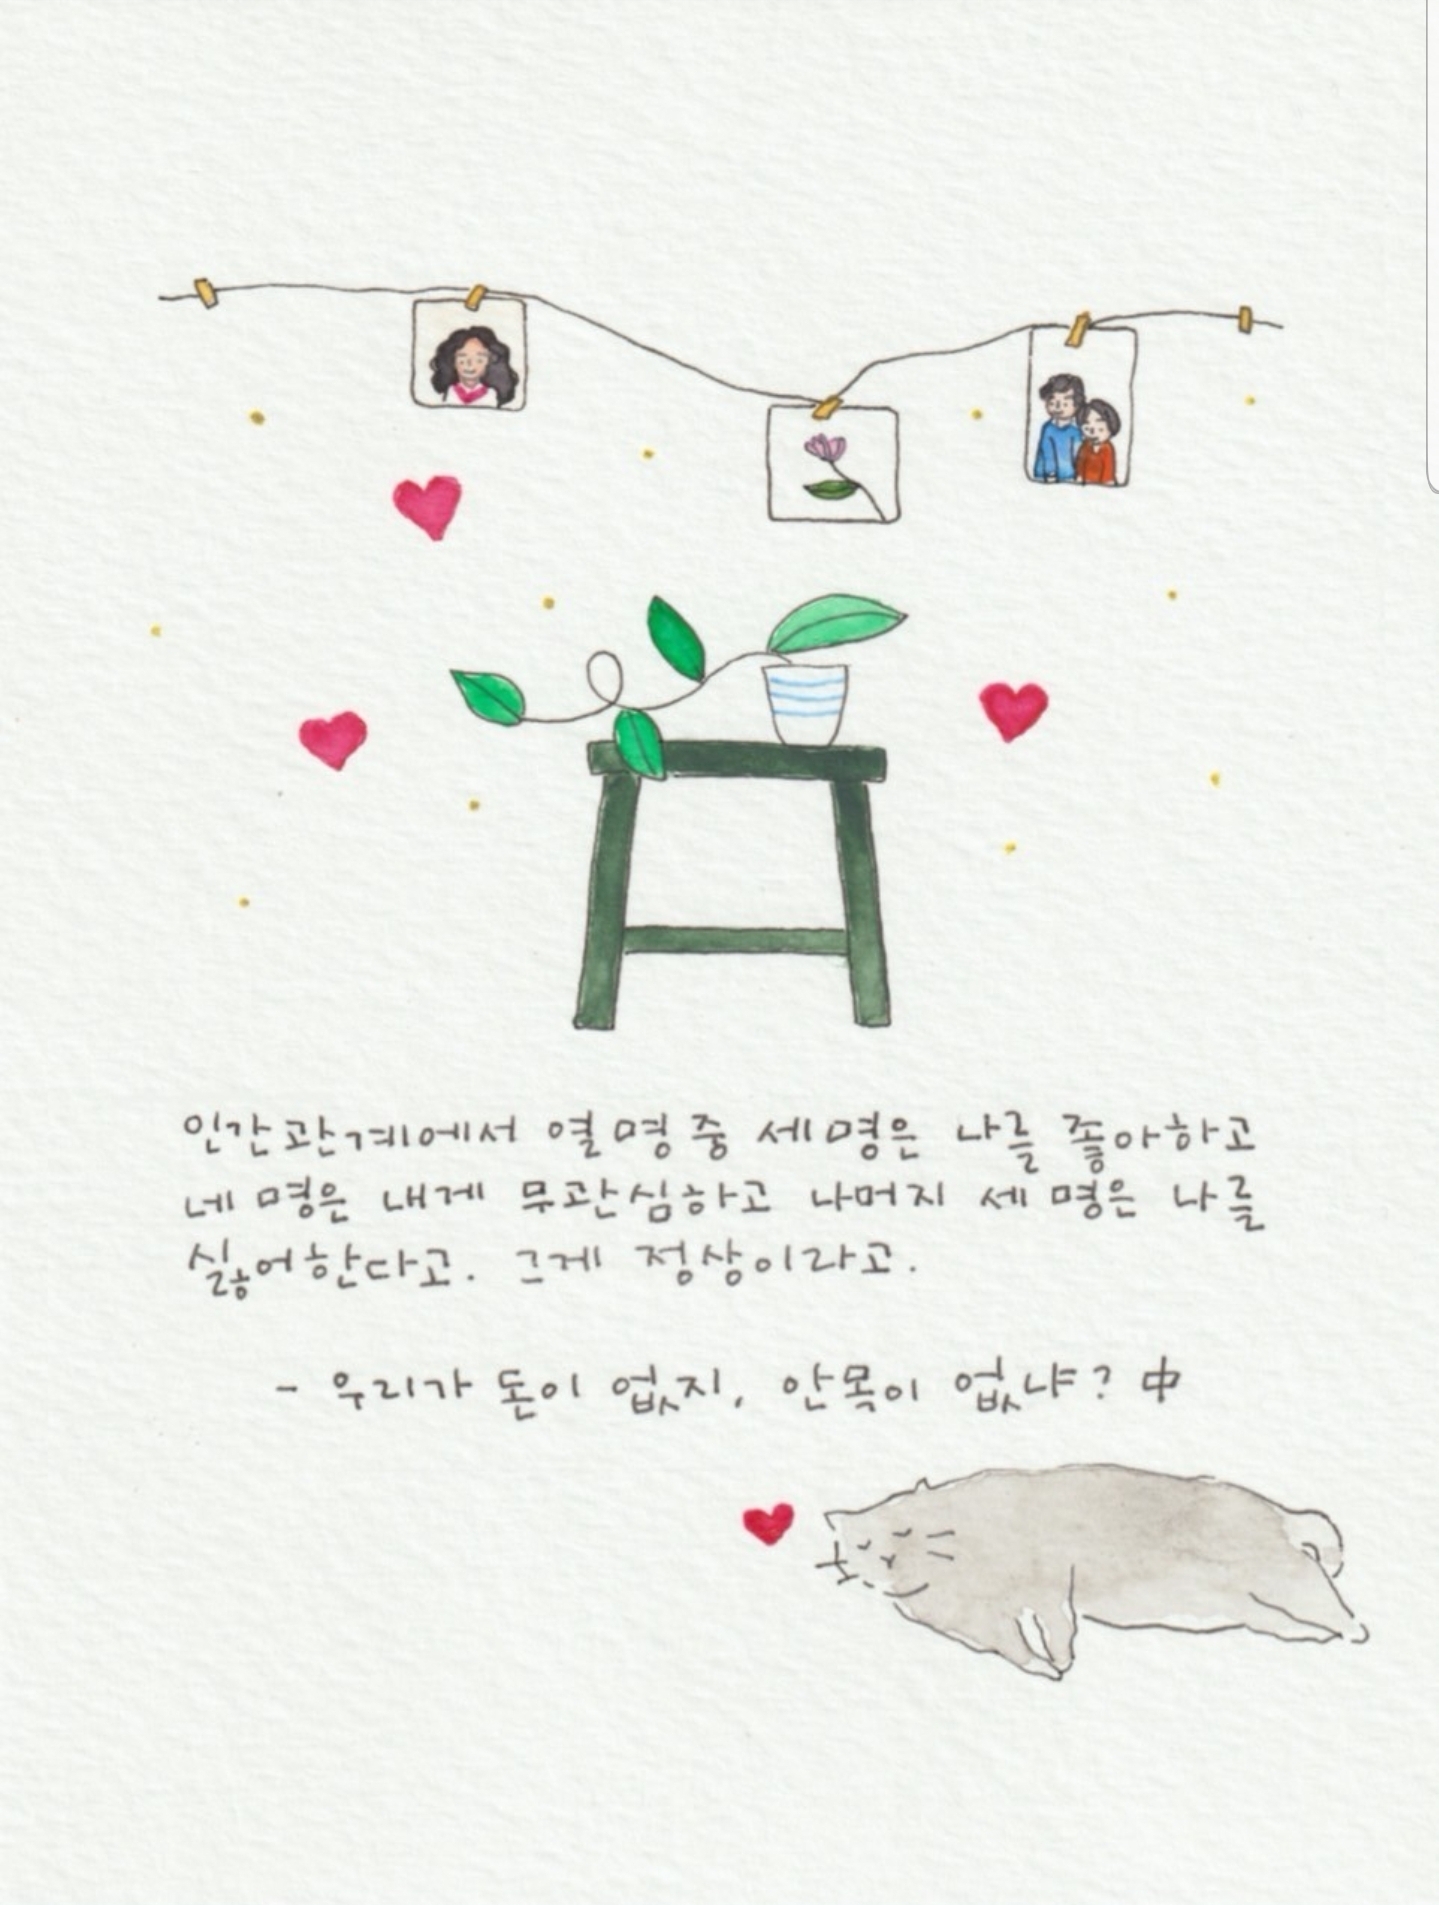 인간관계에서 열 명 중 세 명은 나를 좋아하고
네 명은 내게 무관심하고 나머지 세 명은 나를
싫어한다고. 그게 정상이라고.
- 우리가 돈이 없지, 안목이 없냐? 中